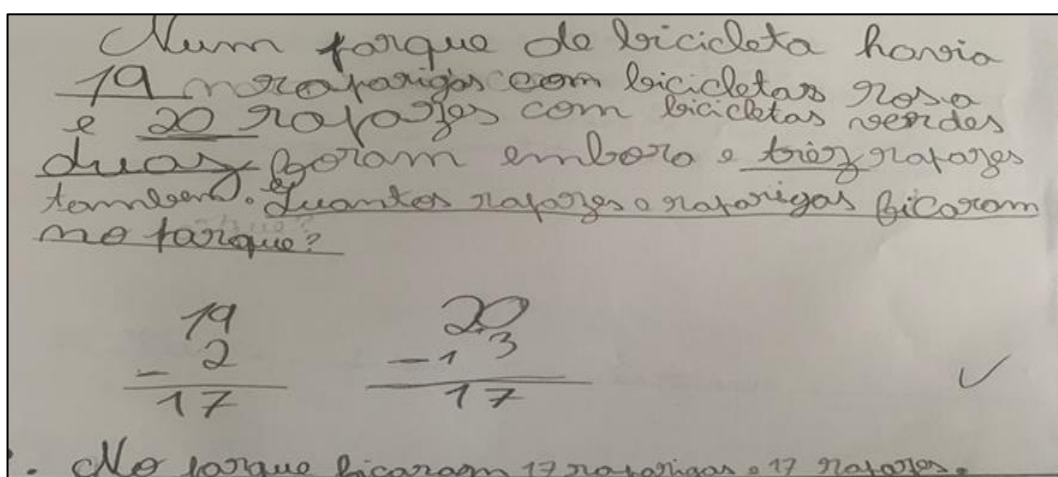 Num parque de bicicleta havia
19 raparigas com bicicletas rosa
e 20 rapazes com bicicletas verdes
duas foram embora e três rapazes
tambem. Quantos rapazes e raparigas ficaram
no parque?
19 20
- 2 - 1 3
17 17
. No parque ficaram 17 raparigas e 17 rapazes.